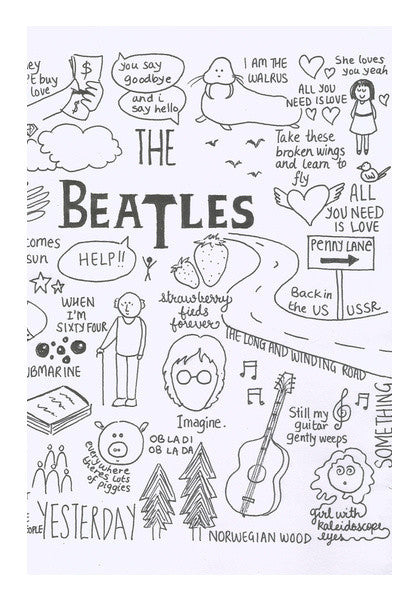 ey
PE buy
love
$
$
you say
goodbye
and i
say hello
I AM THE
WALRUS
She loves
you yeah
ALL YOU
NEED IS LOVE
THE
BEATLES
Take these
broken wings
and learn to
fly
ALL
YOU NEED
IS LOVE
omes
sun
HELP!!
PENNY LANE
strawberry
fieds
forever
Back in
the US
USSR
WHEN
I'M
SIXTY FOUR
THE LONG AND WINDING ROAD
BMARINE
Imagine.
SOMETHING
Still my
guitar
gently weeps
everywhere
theres lots
of piggies
OB LA DI
OB LA DA
girl with
kaleidoscope
eyes
E
EOPLE
YESTERDAY
NORWEGIAN WOOD